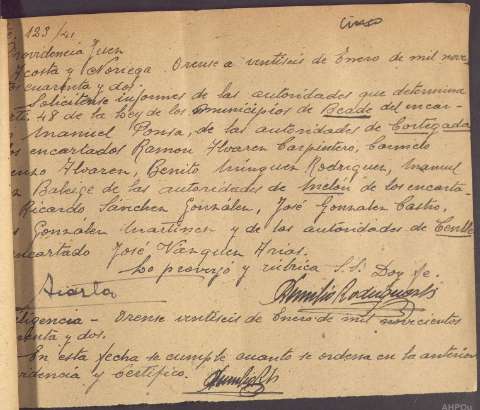 123/41
Providencia Juez
Acosta y Noriega. Orense a veintiseis de Enero de mil nove-
tos cuarenta y dos.
Solicítense informes de las autoridades que determina
48 de la Ley de los municipios de Beade del encar-
Manuel Ponsa, de las autoridades de Cortegada
los encartados Ramón Alvarez Carpintero, Carmelo
Alvarez, Benito Rodriguez, Manuel
Baleige de las autoridades de Melón de los encarta-
Ricardo Sánchez González, José Gonzalez Castro,
González Martinez y de las autoridades de Cenlle
encartado José Vazquez Arias.
Lo proveyó y rúbrica S.S. Doy fe.
ligencia - Orense veintiseis de Enero de mil novecientos
renta y dos.
En esta fecha se cumple cuanto se ordena en la anterior
idencia y certifico.
AHPOu